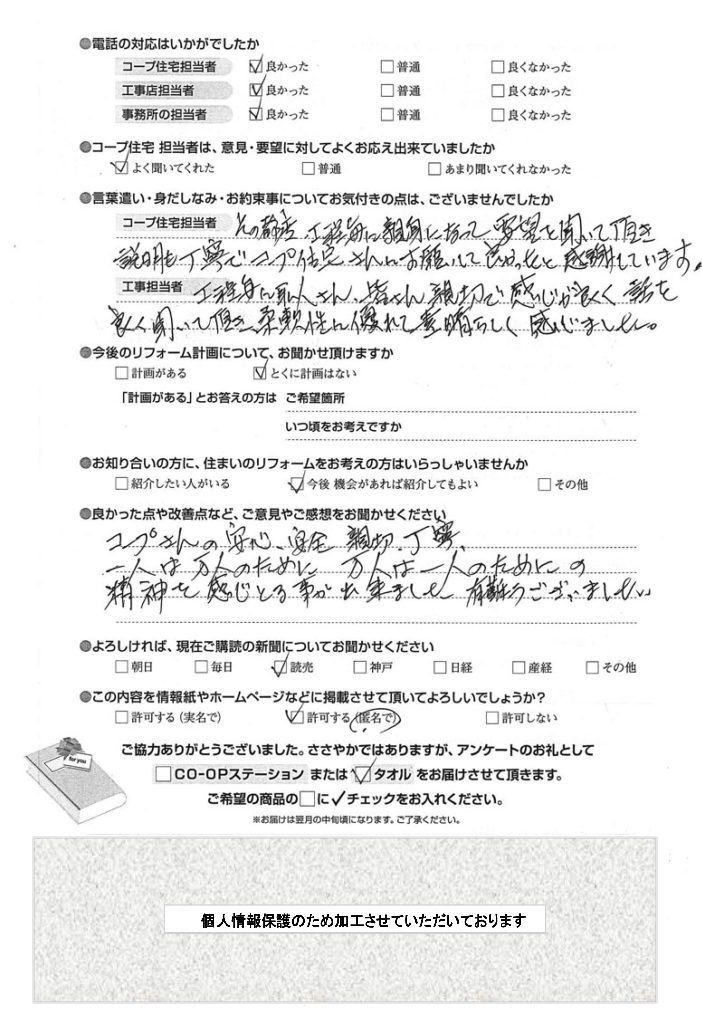 ●電話の対応はいかがでしたか
コープ住宅担当者 ☑良かった □普通 □良くなかった
工事店担当者 ☑良かった □普通 □良くなかった
事務所の担当者 ☑良かった □普通 □良くなかった
●コープ住宅 担当者は、意見・要望に対してよくお応え出来ていましたか
☑よく聞いてくれた □普通 □あまり聞いてくれなかった
●言葉遣い・身だしなみ・お約束事についてお気付きの点は、ございませんでしたか
コープ住宅担当者 その都度、工程毎に親身になって要望を聞いて頂き
説明も丁寧でコープ住宅さんにお願いして良かったと感謝しています。
工事担当者 工程毎に職人さん、皆さん親切で感じが良く話を
良く聞いて頂き柔軟性に優れて素晴らしく感じました。
●今後のリフォーム計画について、お聞かせ頂けますか
□計画がある ☑とくに計画はない
「計画がある」とお答えの方は ご希望箇所
いつ頃をお考えですか
●お知り合いの方に、住まいのリフォームをお考えの方はいらっしゃいませんか
□紹介したい人がいる ☑今後 機会があれば紹介してもよい □その他
●良かった点や改善点など、ご意見やご感想をお聞かせください
コープさんの安心、安全 親切、丁寧、
一人は万人のために 万人は一人のために の
精神を感じとる事が出来ました 有難うございました
●よろしければ、現在ご購読の新聞についてお聞かせください
□朝日 □毎日 ☑読売 □神戸 □日経 □産経 □その他
●この内容を情報紙やホームページなどに掲載させて頂いてよろしいでしょうか?
□許可する(実名で) ☑許可する(匿名で) □許可しない
for you
ご協力ありがとうございました。ささやかではありますが、アンケートのお礼として
□CO-OPステーション または ☑タオル をお届けさせて頂きます。
ご希望の商品の□に✓チェックをお入れください。
※お届けは翌月の中旬頃になります。ご了承ください。
個人情報保護のため加工させていただいております